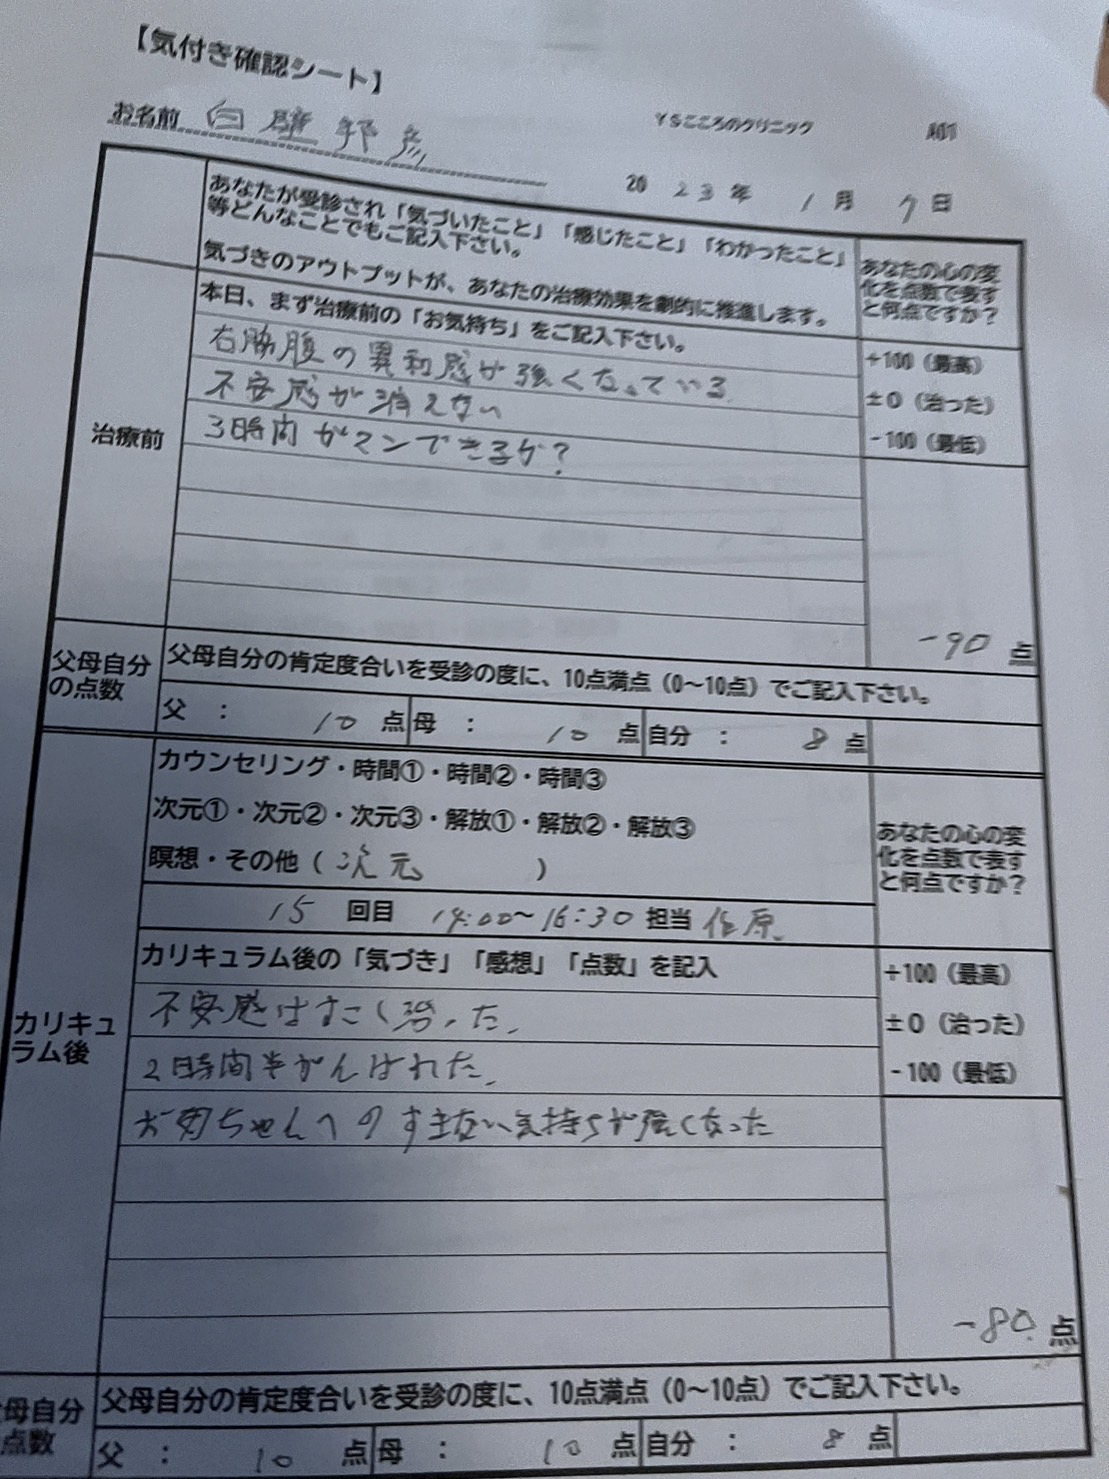 【気付き確認シート】
お名前 白壁邦彦
YSこころのクリニック A01
2023年 1月 7日
あなたが受診され「気づいたこと」「感じたこと」「わかったこと」
等どんなことでもご記入下さい。
気づきのアウトプットが、あなたの治療効果を劇的に推進します。
あなたの心の変
化を点数で表す
と何点ですか?
治療前
本日、まず治療前の「お気持ち」をご記入下さい。
右脇腹の異和感が強くなっている
不安感が消えない
3時間ガマンできるか?
+100(最高)
±0(治った)
-100(最低)
-90 点
父母自分
の点数
父母自分の肯定度合いを受診の度に、10点満点(0~10点)でご記入下さい。
父 : 10 点 母 : 10 点 自分 : 8 点
カリキュ
ラム後
カウンセリング・時間①・時間②・時間③
次元①・次元②・次元③・解放①・解放②・解放③
瞑想・その他(次元 )
あなたの心の変
化を点数で表す
と何点ですか?
15 回目 14:00~16:30 担当 作原
カリキュラム後の「気づき」「感想」「点数」を記入
不安感はすこし治った.
2時間半がんばれた.
お母ちゃんへのすまない気持ちが強くなった
+100(最高)
±0(治った)
-100(最低)
-80 点
母自分
点数
父母自分の肯定度合いを受診の度に、10点満点(0~10点)でご記入下さい。
父 : 10 点 母 : 10 点 自分 : 8 点